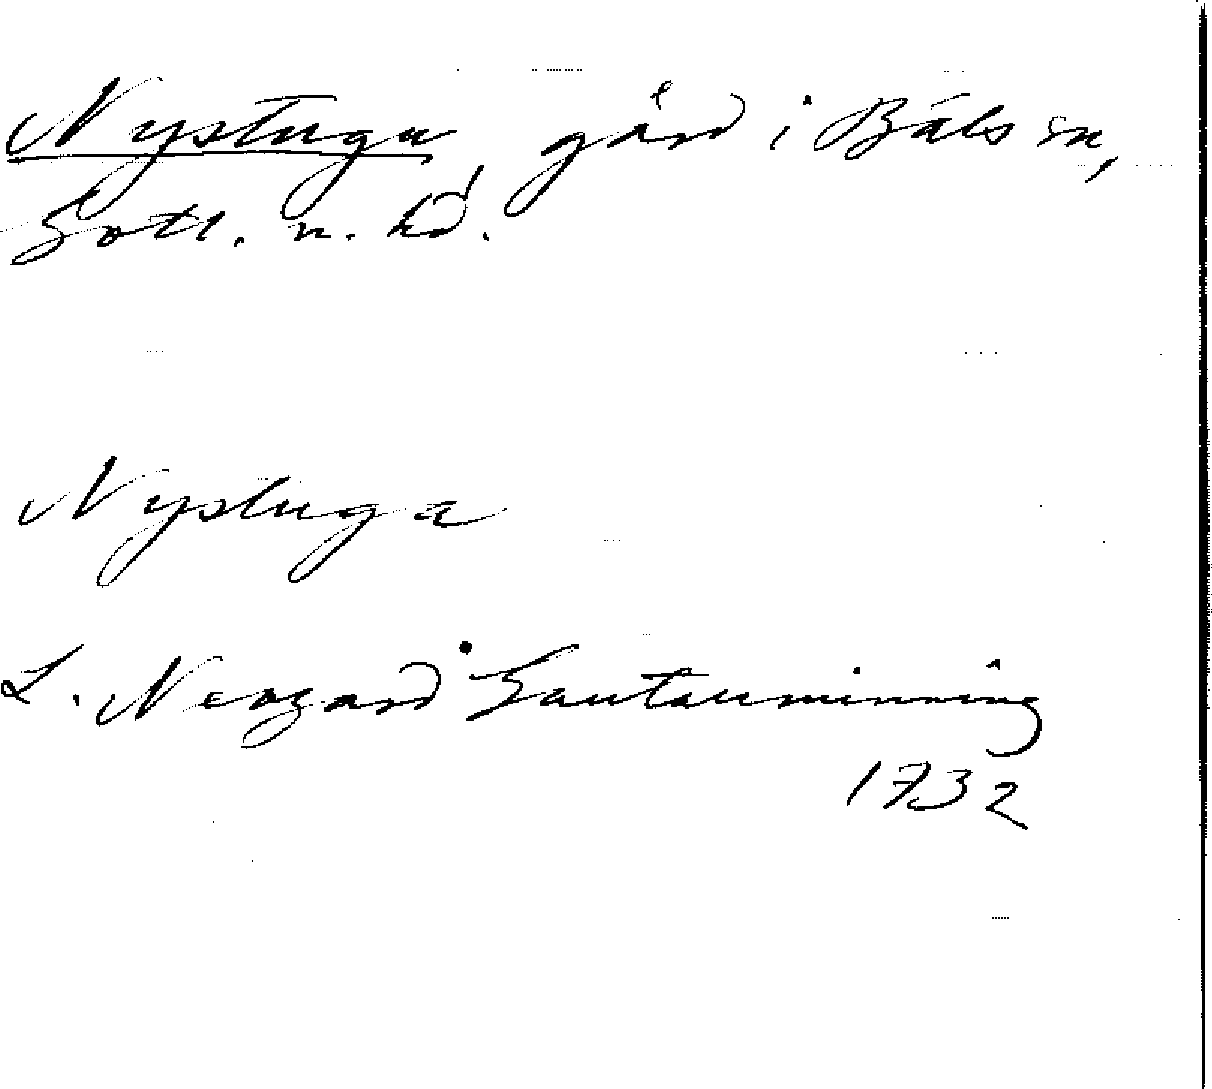 Nystugu gård i Bäls sn,
Gotl. n. hd.
Nystuga
L. Neogard Gautauminning
1732